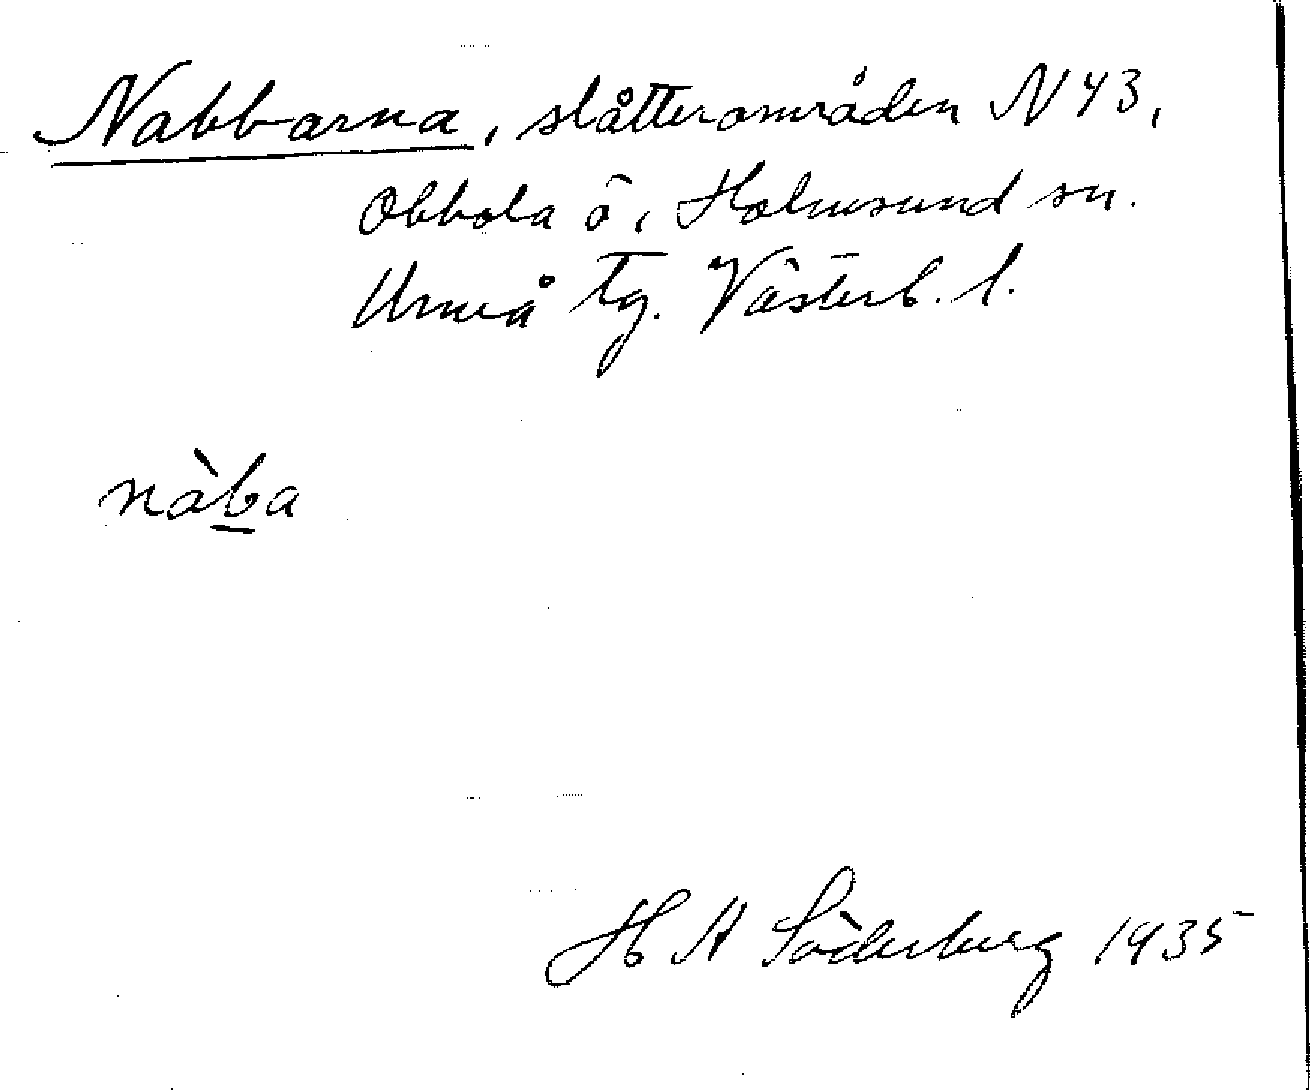 Nabbarna, slåtterområden N43,
Obbola ö, Holmsund sn.
Umeå tg. Västerb. l.
nàb̲a
H A Söderberg 1935